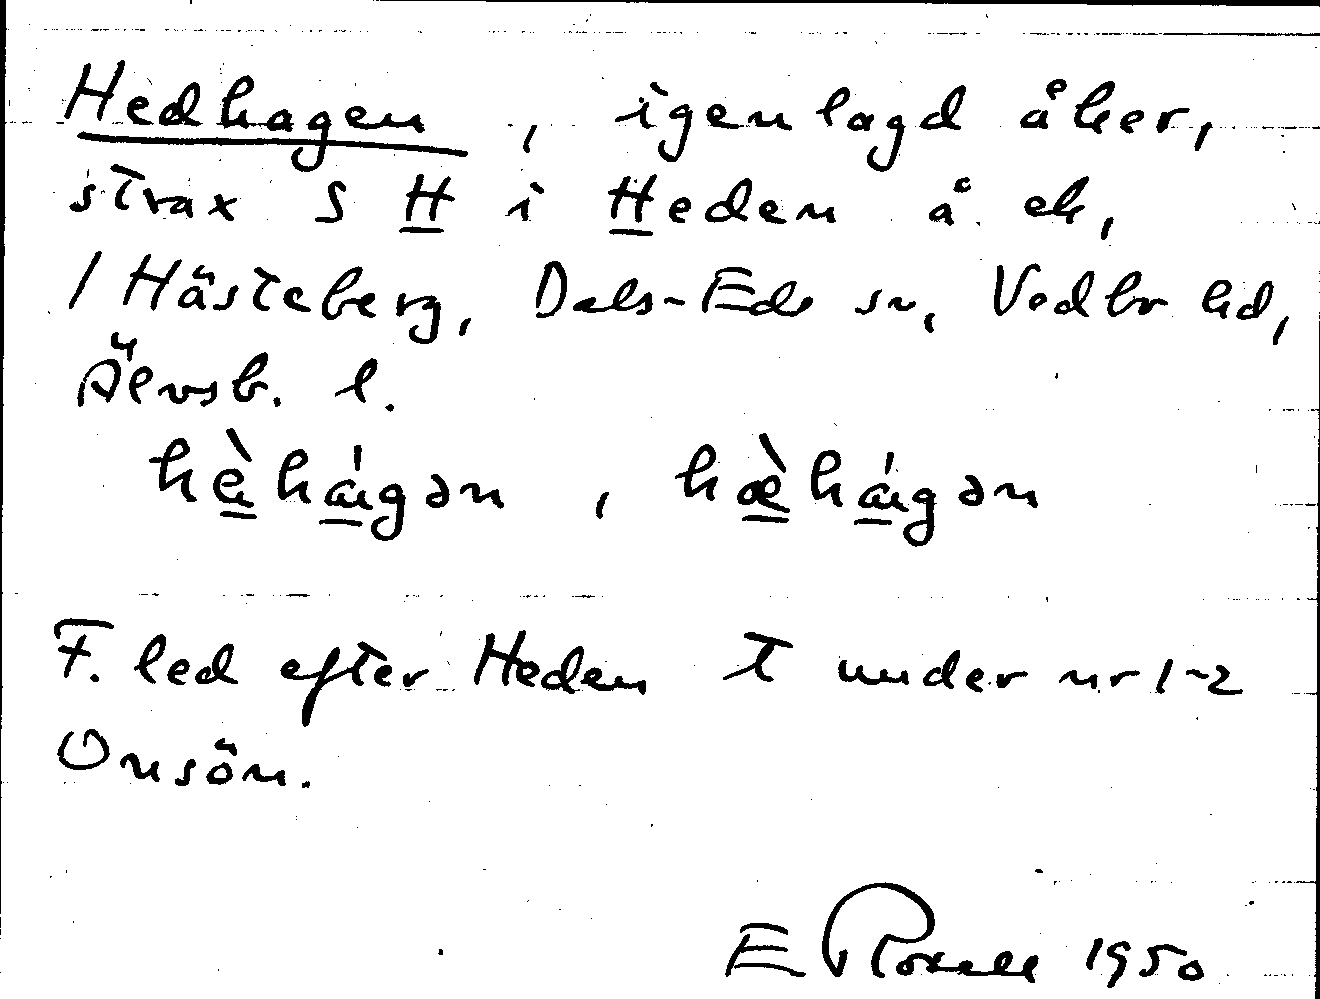 Hedhagen, igenlagd åker,
strax S H i Heden å ek,
1 Hästeberg, Dals-Eds sn, Vedbo hd,
Älvsb. l.
hèhágən, hæ̀hágən
F. led efter Heden T under nr 1-2
Onsön.
E Roxell 1950